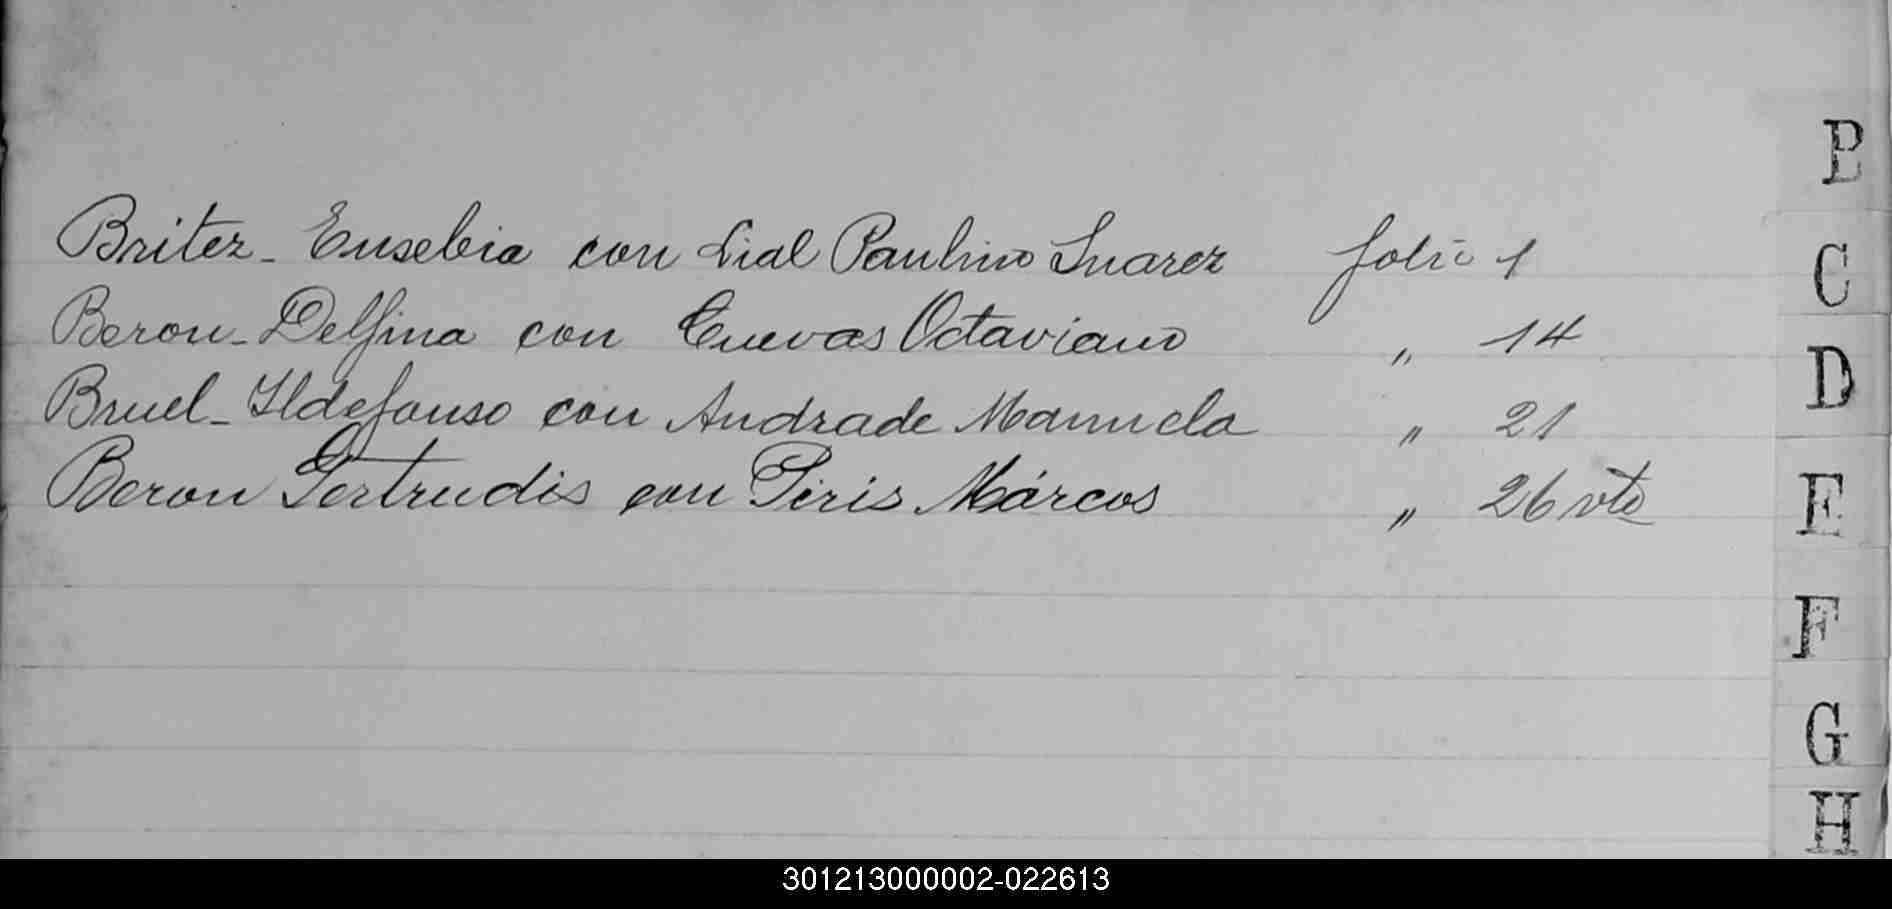 Britez - Eusebia con Lial Paulino Suarez folio 1
Beron - Delfina con Cuevas Octaviano " 14
Bruel - Ildefonso con Andrade Manuela " 21
Beron Gertrudis con Piris Márcos " 26 vta
B
C
D
E
F
G
H
301213000002-022613